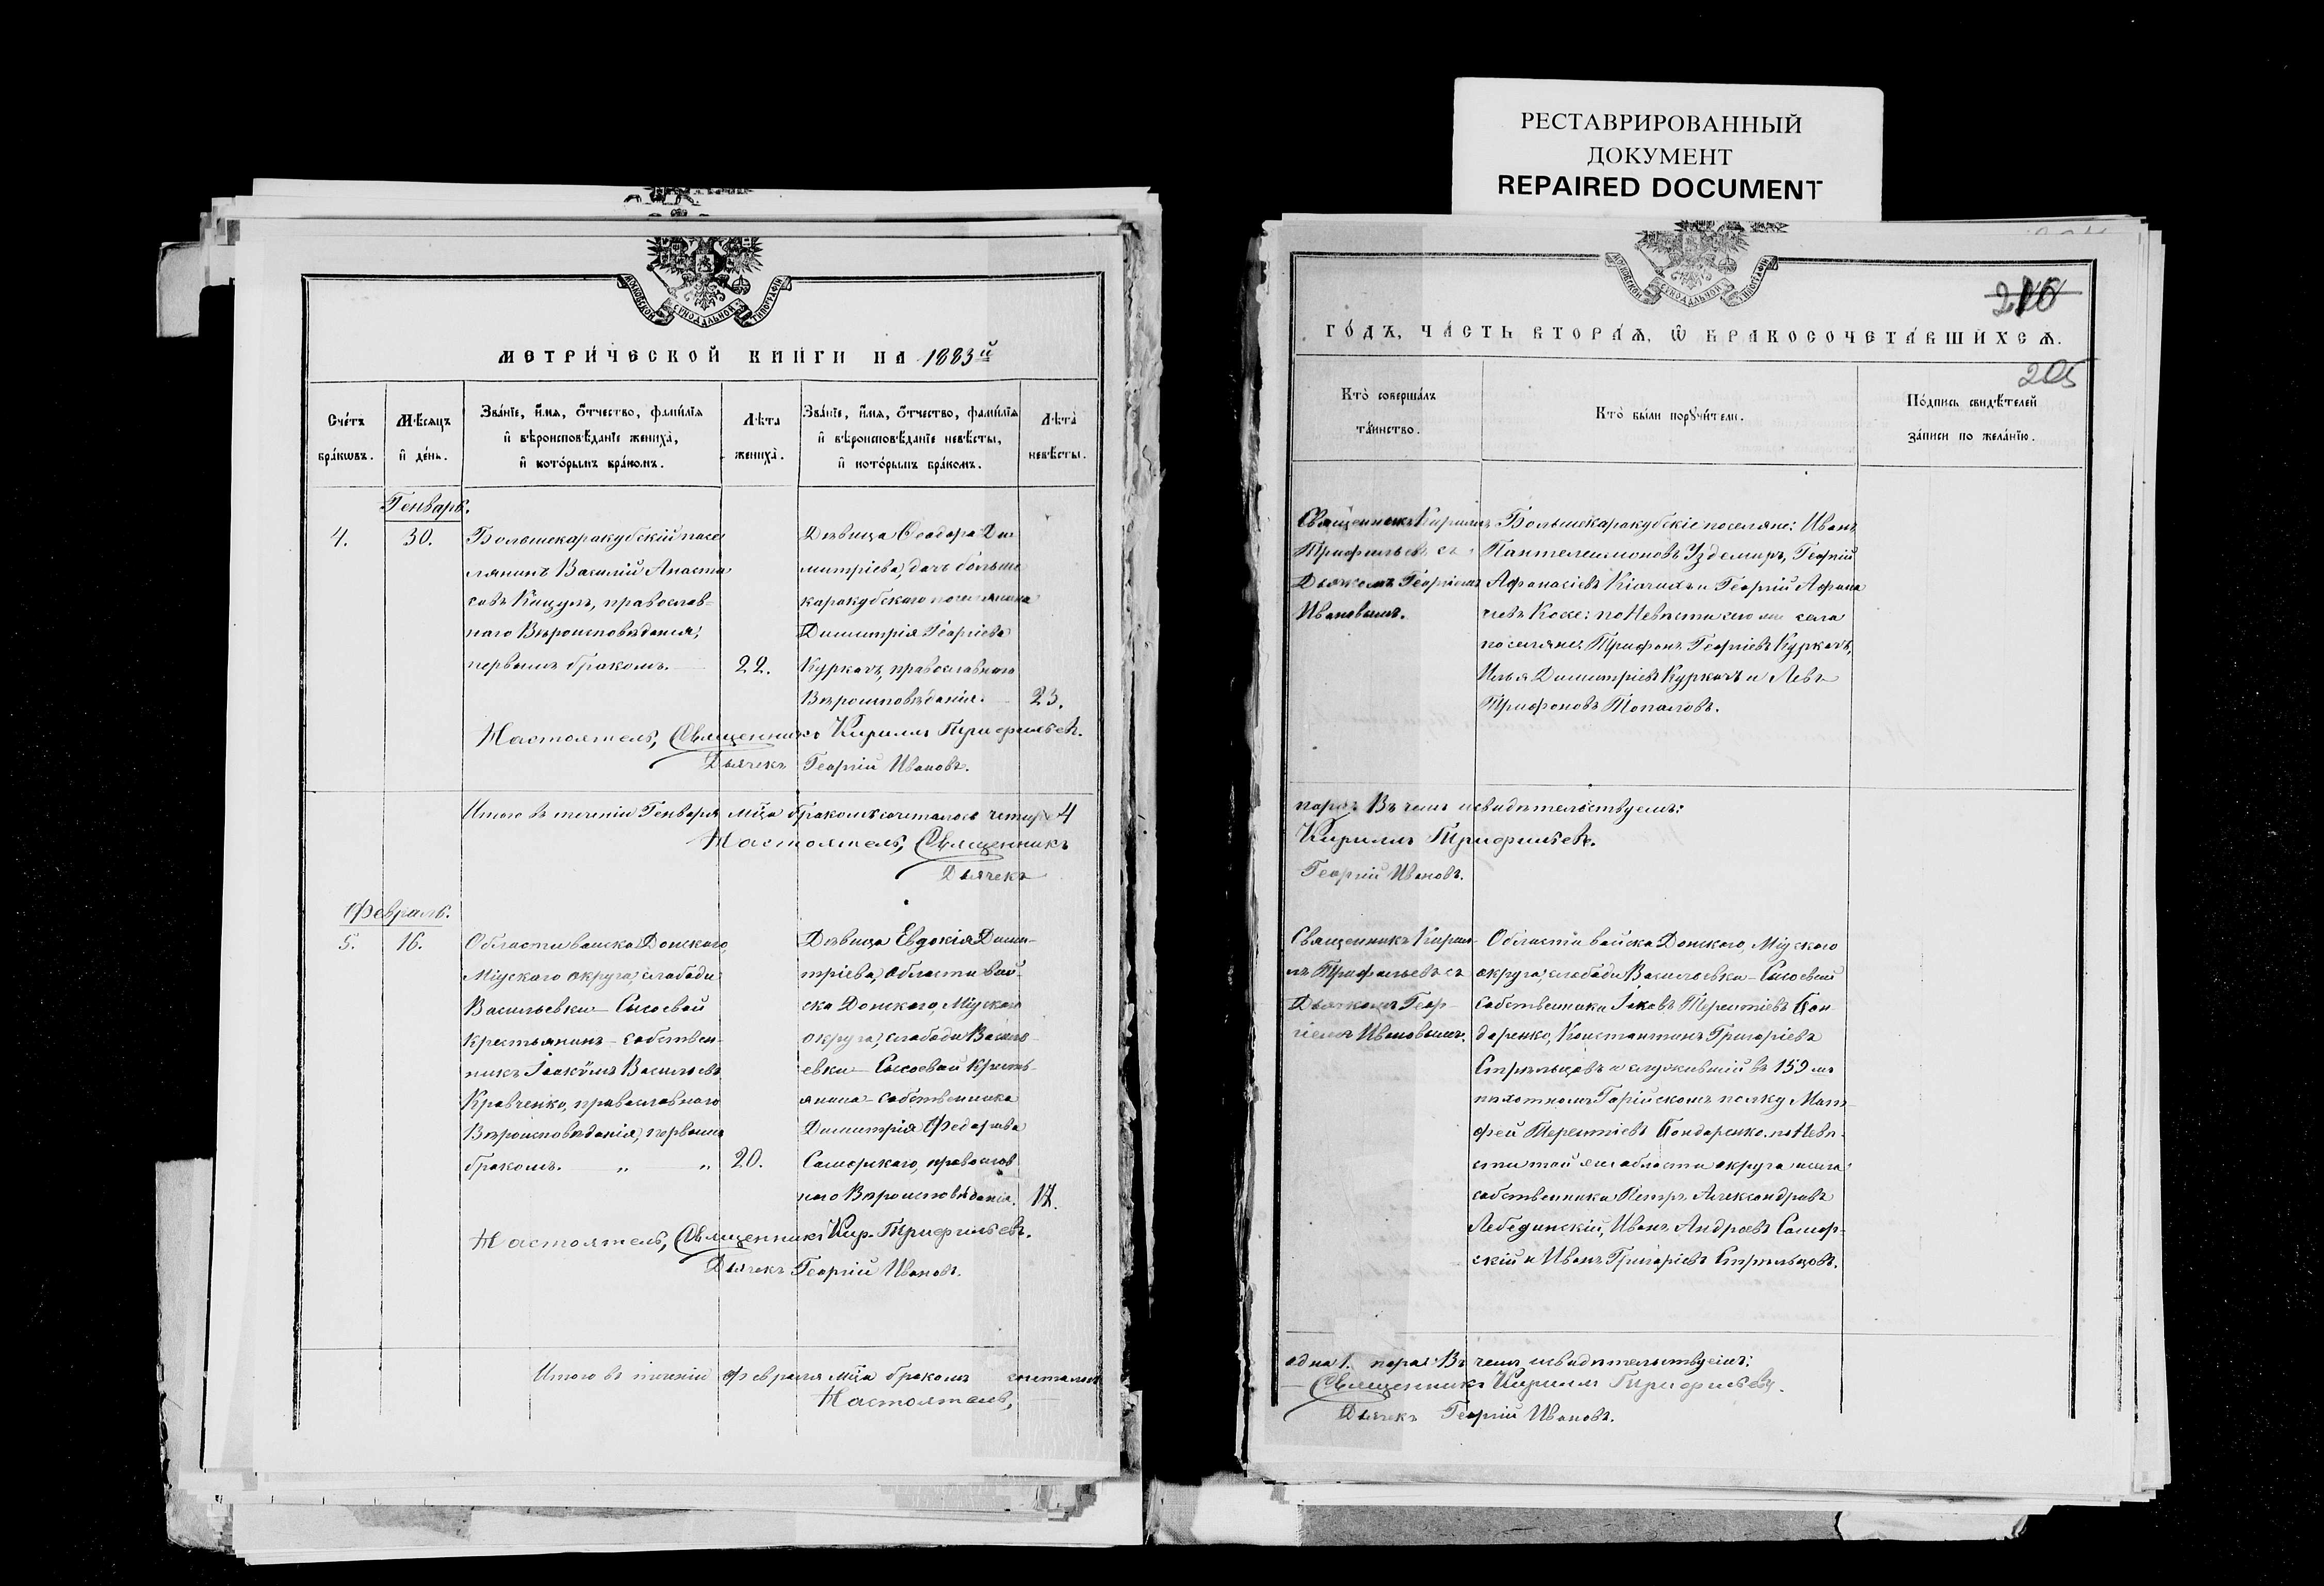 РЕСТАВРИРОВАННЫЙ
ДОКУМЕНТ
REPAIRED DOCUMENT
МОСКОВСКОЙ СѴНОДАЛЬНОЙ ТИПОГРАФІИ
МЕТРИ́ЧЕСКОЙ КНИ́ГИ НА 1883й
Сче́тъ
бра́кѡвъ.
Мѣ́сяцъ
и҆ де́нь.
Зва́нїе, и҆́мя, ѻ҆́тчество, фами́лїя
и҆ вѣроисповѣ́данїе жениха̀,
и҆ кото́рымъ бра́комъ.
Лѣ́та
жениха̀.
Зва́нїе, и҆́мя, ѻ҆́тчество, фами́лїя
и҆ вѣроисповѣ́данїе невѣ́сты,
и҆ кото́рымъ бра́комъ.
Лѣ́та
невѣ́сты.
Генварь.
4.
30.
Большекаракубскій посе
лянинъ Василій Анаста
совъ Кицулъ, православ-
наго Вѣроисповѣданія,
первымъ бракомъ.
22.
Дѣвица Ѳеодора Ди
митріева, дочь больше
каракубскаго поселянина
Димитрія Георгіева
Куркачъ, православнаго
Вѣроисповѣданія.
23.
Настоятель, Священникъ Кирилл Трифильевъ.
Дьячекъ Георгій Ивановъ.
Итого въ теченіи Генваря мѣца бракомъ сочеталось четыре 4
Настоятель, Священникъ
Дьячекъ
Февраль.
5.
16.
Области войска Донскаго,
Міускаго округа, слободи
Васильевки-Сысоевой
крестьянинъ-собствен-
никъ Іоакимъ Васильевъ
Кравченко, православнаго
Вѣроисповѣданія, первымъ
бракомъ. „ „
20.
Дѣвица Евдокія Дими-
тріева, области вой-
ска Донскаго, Міускаго
округа, слободи Василь-
евки-Сысоевой крестъ-
янина-собственника
Димитрія Федорова
Самарскаго, православ
наго Вѣроисповѣданія.
Настоятель, Священникъ Кир. Трифильевъ.
Дьячекъ Георгій Ивановъ.
Итого въ теченіи февраля мѣца бракомъ сочеталась
Настоятель,
МОСКОВСКОЙ СѴНОДАЛЬНОЙ ТИПОГРАФІИ
ГО́ДЪ, ЧА́СТЬ ВТОРА́Ѧ, Ѡ҆ БРАКОСОЧЕТА́ВШИХСѦ.
205
Кто̀ соверша́лъ
та́инство.
Кто̀ бы́ли порꙋчи́тели.
По́дпись свидѣ́телей
за́писи по жела́нїю.
Священникъ Кириллъ
Трифильевъ съ
Дьячкомъ Георгіемъ
Ивановымъ.
Большекаракубскіе поселяне: Иванъ
Пантелеимоновъ Уздемиръ, Георгій
Афанасіевъ и Георгій Афана
сіевъ Косе: по Невѣсти того же села
поселяне: Трифонъ Георгіевъ Куркачъ,
Илья Димитріевъ Куркачъ и Левъ
Трифоновъ Топаловъ.
паръ. Въ чемъ исвидѣтельствуемъ:
Кириллъ Трифильевъ.
Георгій Ивановъ.
Священникъ Кирил-
лъ Трифильевъ съ
Дьячкомъ Геор-
гіемъ Ивановымъ.
Области войска Донскаго, Міускаго
округа, слободи Васильевки-Сысоевой
собственники Іаковъ Терентіевъ Бон-
даренко, Константинъ Григоріевъ
Стрѣльцовъ и служившій въ 159мъ
пѣхотномъ Гурійскомъ полку Мат-
фей Терентіевъ Бондаренко. по Невѣ-
сти той же области округа и села:
собственники Петръ Александровъ
Лебединскій, Иванъ Андреевъ Самар-
скій и Иванъ Григоріевъ Стрѣльцовъ.
одна 1. пара: Въ чемъ исвидѣтельствуемъ:
Священникъ Кириллъ Трифильевъ.
Дьячекъ Георгій Ивановъ.